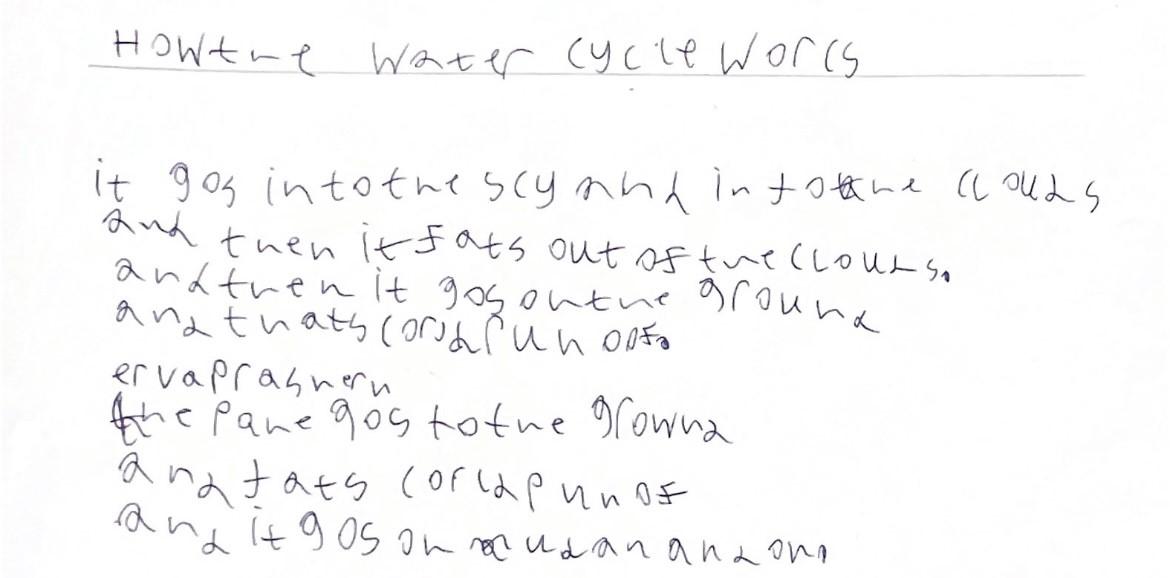 How the water cycle works
it gos into the scy and into the clouds
and then it fats out of the clouds.
and then it gos on the ground
and thats corld run oof.
ervaprashern
the rane gos to the grownd
and tats corld run of
and it gos on and an and on.